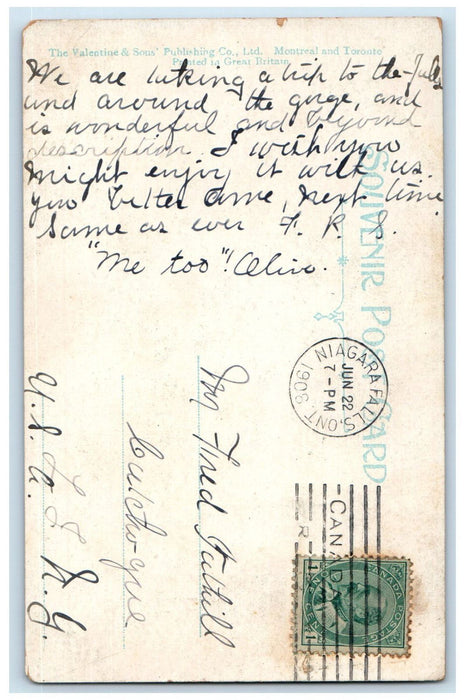 The Valentine & Sons' Publishing Co., Ltd. Montreal and Toronto
Printed in Great Britain
We are taking a trip to the Falls
and around the gorge, and
is wonderful and beyond
description. I wish you
might enjoy it with us.
you better come, next time
Same as ever F. R. S.
"Me too"! Olive.
SOUVENIR POST CARD
NIAGARA FALLS, ONT.
JUN 22
7 - PM
1908
CANADA
CANADA POSTAGE
ONE CENT
1 1
Mr Fred Tuthill
Cutchogue
L I N. Y.
U. S. A.